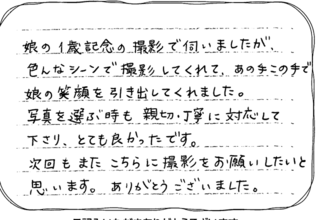 娘の1歳記念の撮影で伺いましたが、
色んなシーンで撮影してくれて、あの手この手で
娘の笑顔を引き出してくれました。
写真を選ぶ時も親切・丁寧に対応して
下さり、とても良かったです。
次回もまたこちらに撮影をお願いしたいと
思います。ありがとうございました。